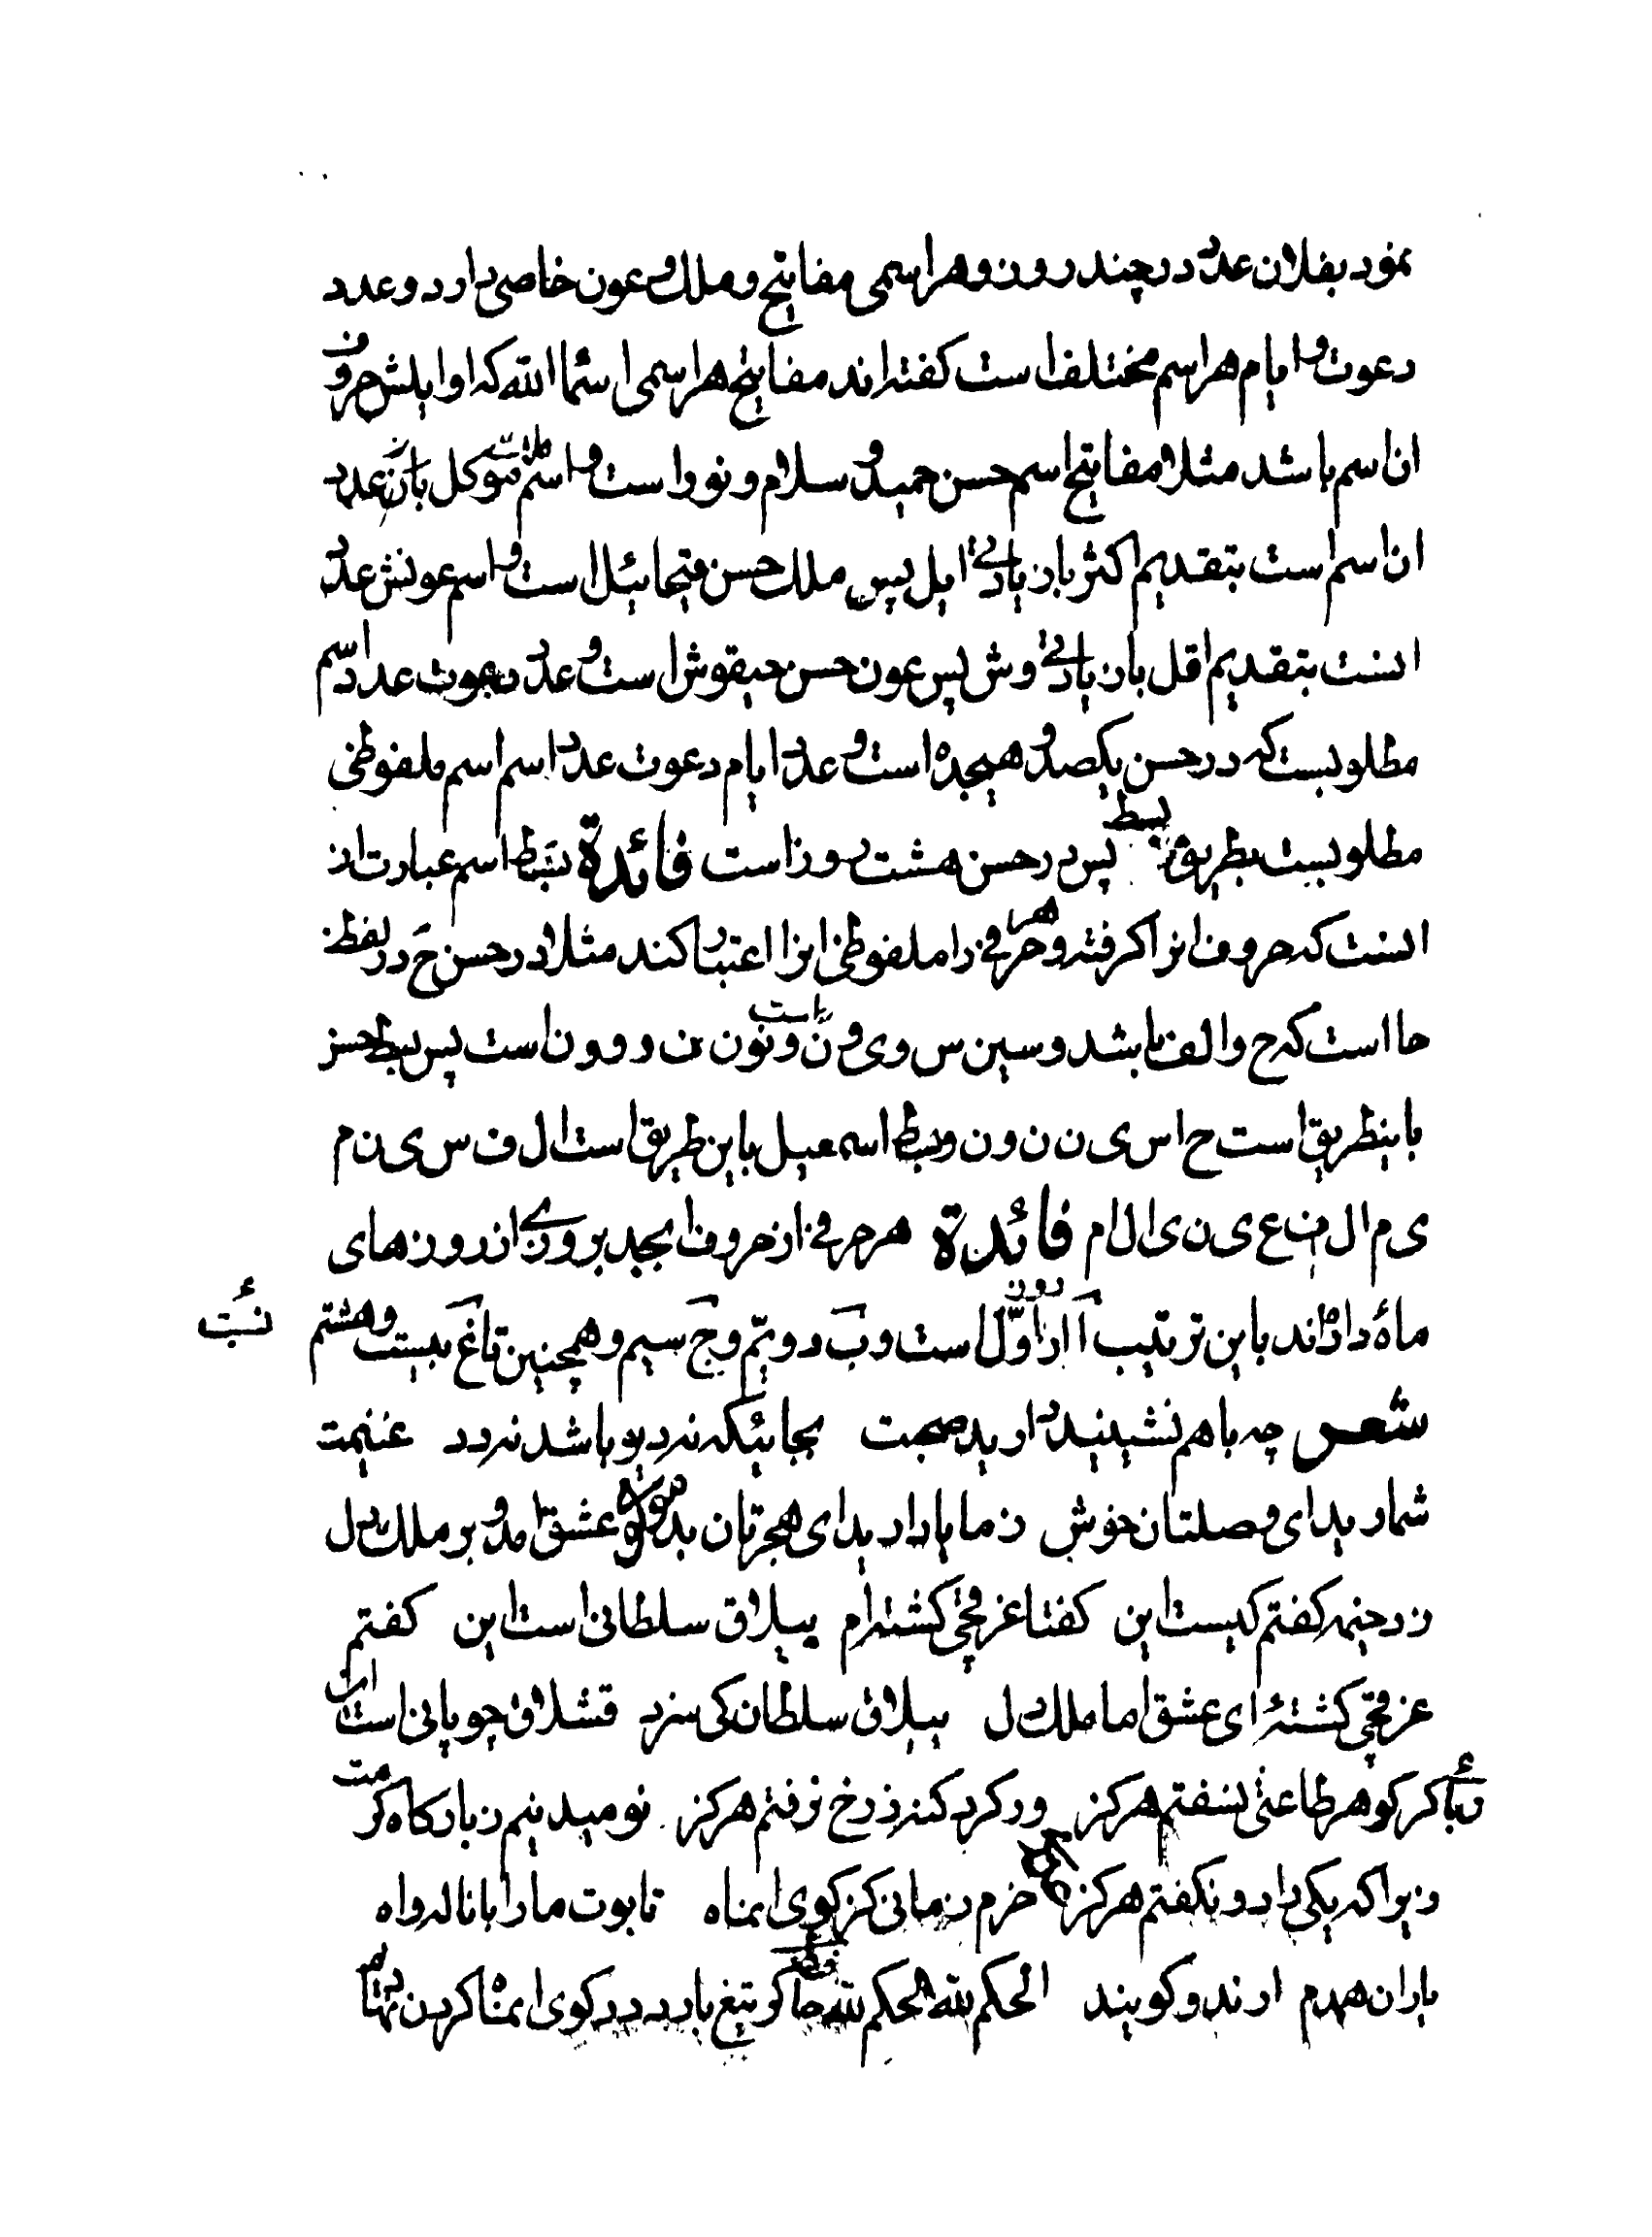 نمود بفلان عدد در چند روز و هر اسمی مفاتیح و ملك و عون خاصی دارد و عدد
دعوت و ایام هر اسم مختلف است كفته اند مفاتیح هر اسمی اسماء الله كه اوایلش حروف
ان اسم باشد مثلا مفاتیح اسم حسن حمید و سلام و نور است و اسم ملائکه موكل بان عدد
ان اسم است بتقدیم اكثر بازیادتی ایل پس ملك حسن قیحائیل است و اسم عونش عدد
انست بتقدیم اقل بازیادتی وش پس عون حسن حیقوش است و عدد دعوت عدد اسم
مطلوبست كه در حسن یكصد و هیجده است و عدد ایام دعوت عدد اسم اسم ملفوظی
مطلوبست بطریق بسط پس در حسن هشت روز است فائدة بسط اسم عبارت از
انست كه حروف انرا كرفته و هر حرفی را ملفوظی انرا اعتبار كند مثلا در حسن ح در لفظ
حا است كه ح و الف باشد و سین س و ی و ن است و نون ن و و ن است پس بسط حسن
باینطریق است ح ا س ی ن ن و ن و بسط اسمعیل باین طریق است ا ل ف س ی ن م
ی م ا ل ف ع ی ن ی ا ل ا م فائدة هر حرفی از حروف ابجد بروزی از روزهای
ماه داده اند باین ترتیب آ از روز اول است و ب دویم و ج سیم و همچنین تا غ بیست و هشتم
شعر چه باهم نشینید دارید صحبت بجائیكه نرد بو باشد نه دد غنیمت
شمارید ای وصلتان خوش زما یاد ارید ای هجرتان بد عشق امد و بر ملك دل
زد خیمه كفتم كیست این كفتا غرقچی كشته ام ییلاق سلطانی است این كفتم
غرقچی كشتهٔ ای عشق اما ملك دل ییلاق سلطان كی سزد قشلاق چوپانی است این
كر كوهر طاعتی نسفتم هركز ور كرد كنه ز رخ نرفتم هركز نومید نیم ز باركاه كرمت
زیرا كه یكی را دو نكفتم هركز خرم زمانی كز كوی انماه تابوت ما را با ناله و اه
یاران همدم ارند و كویند الحكم لله الحكم لله كر تیغ بارد در كوی انماه كردن نهادیم